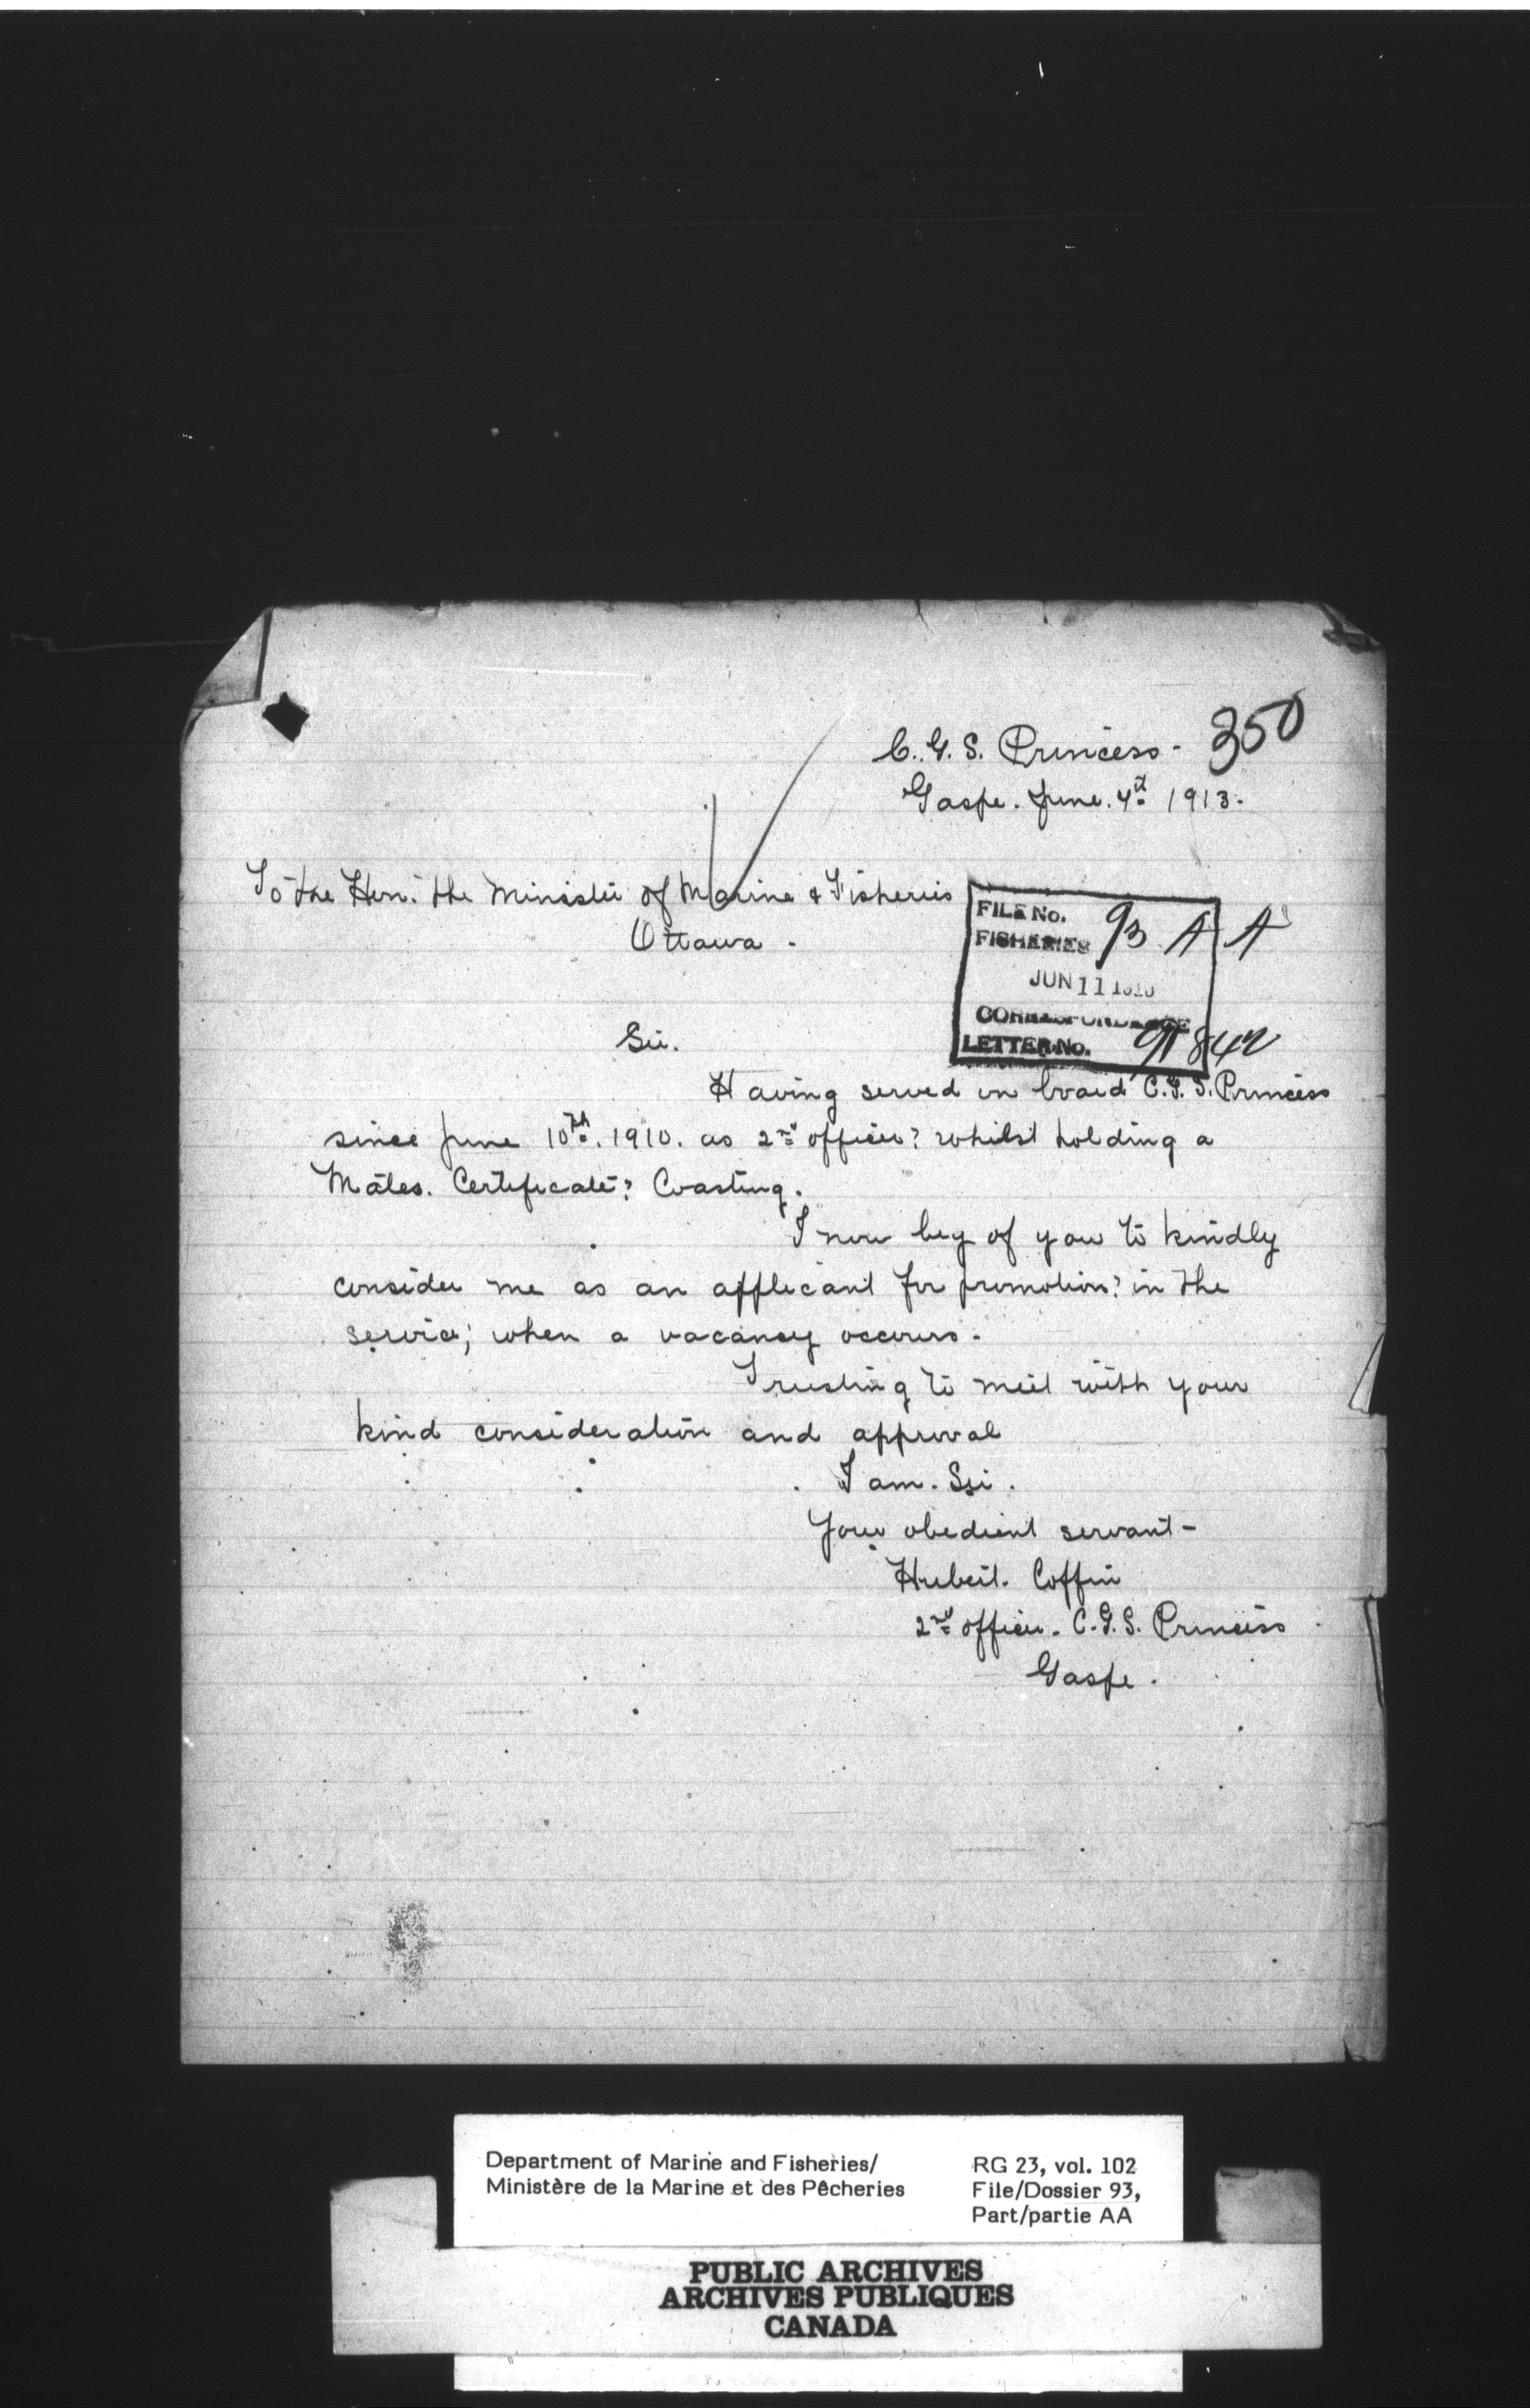 350
C. G. S. Princess -
Gaspe. June. 4th 1913.
To the Hon. the Minister of Marine & Fisheries
Ottawa.
FILE No.
FISHERIES 93 A A
JUN 11 1913
CORRESPONDENCE
LETTER No. 91842
Sir.
Having served on board C.G.S. Princess
since June 10th. 1910. as 2nd officer? whilst holding a
Mates. Certificate? Coasting.
I now beg of you to kindly
consider me as an applicant for promotion? in the
service; when a vacancy occurs.
Trusting to meet with your
kind consideration and approval
I am. Sir.
Your obedient servant -
Hubert. Coffin
2nd officer. C.G.S. Princess
Gaspe.
Department of Marine and Fisheries/
Ministère de la Marine et des Pêcheries
RG 23, vol. 102
File/Dossier 93,
Part/partie AA
PUBLIC ARCHIVES
ARCHIVES PUBLIQUES
CANADA